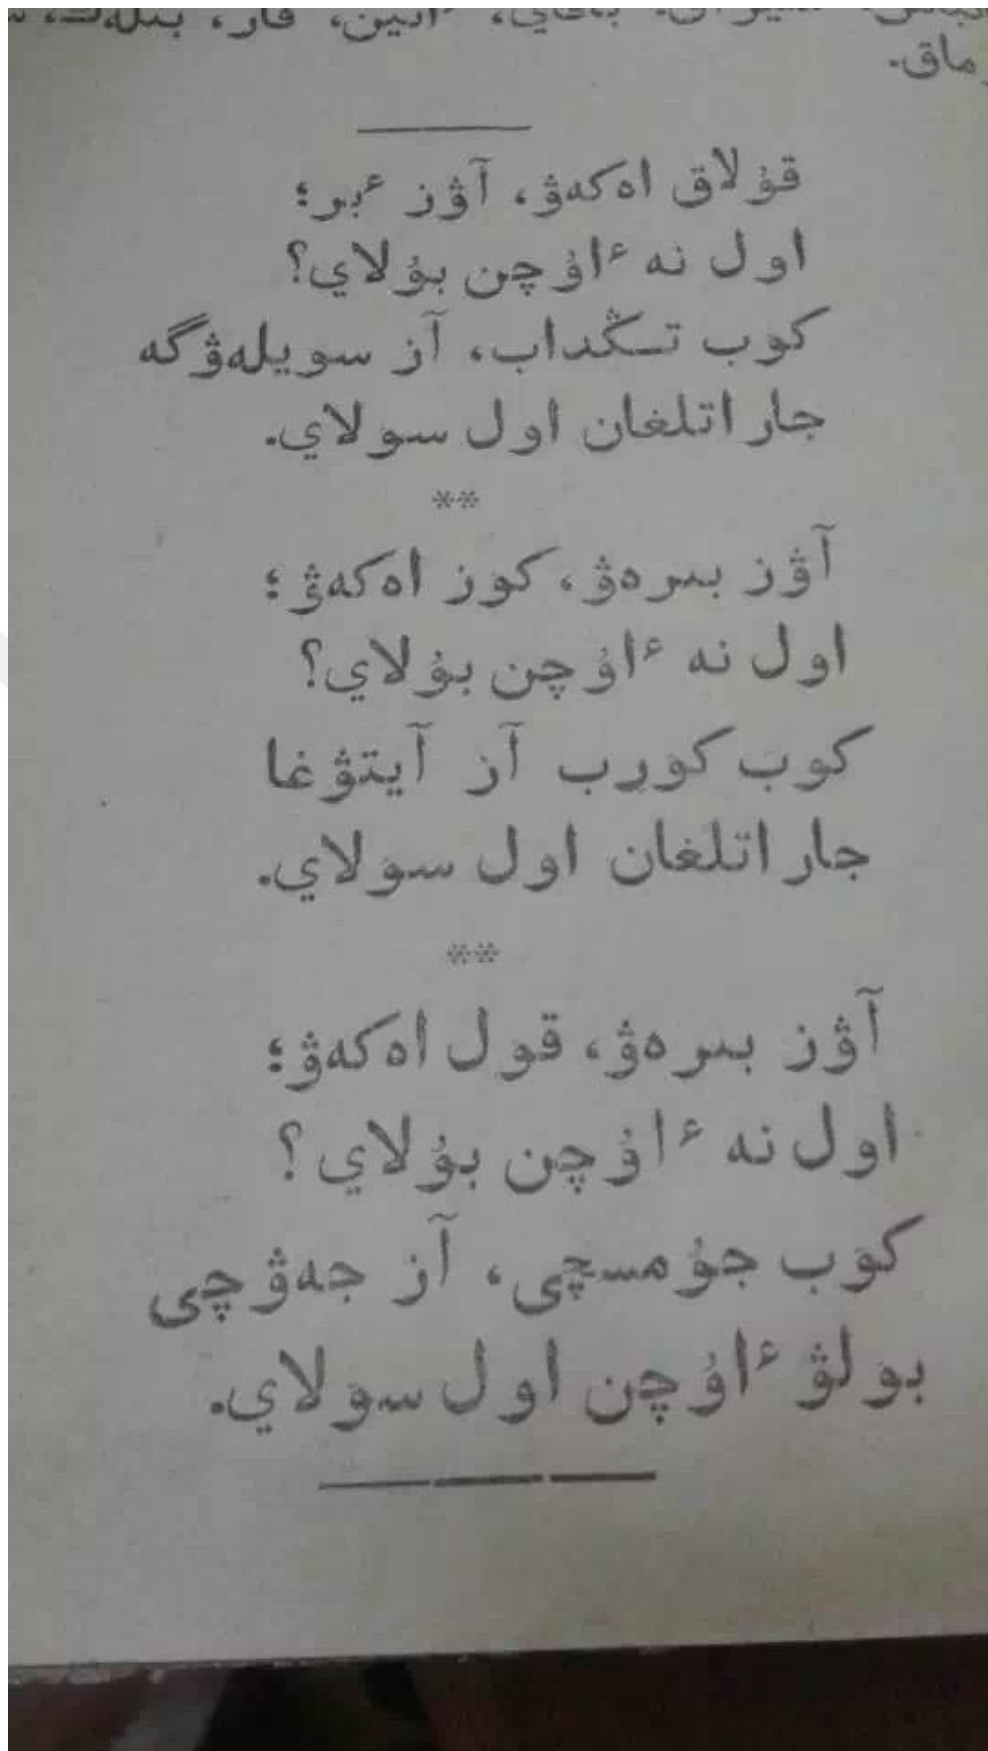 ماق.
قۇلاق اەكەۋ، آۋز ٴبىر؛
اول نە ٴاۇچن بۇلاي؟
كوب تـىڭداب، آز سويلەۋگە
جاراتلغان اول سولاي.
**
آۋز بىرەۋ، كوز اەكەۋ؛
اول نە ٴاۇچن بۇلاي؟
كوب كورب آز آيتۋغا
جاراتلغان اول سولاي.
**
آۋز بىرەۋ، قول اەكەۋ؛
اول نە ٴاۇچن بۇلاي؟
كوب جۇمسچى، آز جەۋچى
بولۋ ٴاۇچن اول سولاي.